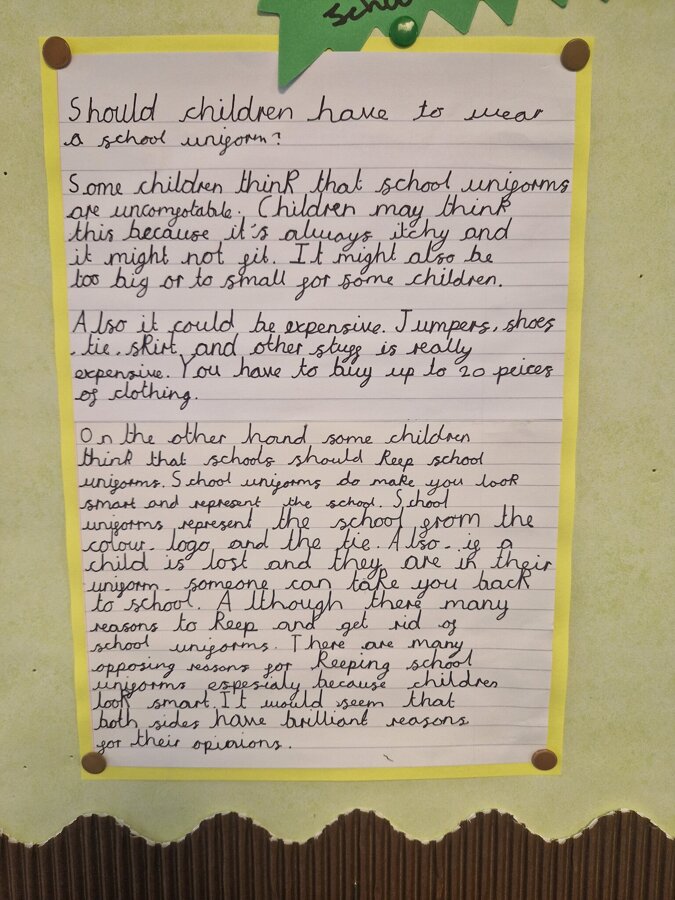 School
Should children have to wear
a school uniform?
Some children think that school uniforms
are uncomfotable. Children may think
this because it's always itchy and
it might not fit. It might also be
too big or to small for some children.
Also it could be expensive. Jumpers, shoes
, tie, skirt and other stuff is really
expensive. You have to buy up to 20 peices
of clothing.
On the other hand some children
think that schools should keep school
uniforms. School uniforms do make you look
smart and represent the school. School
uniforms represent the school from the
colour, logo and the tie. Also, if a
child is lost and they are in their
uniform, someone can take you back
to school. Although there many
reasons to keep and get rid of
school uniforms. There are many
opposing reasons for keeping school
uniforms espesialy because children
look smart. It would seem that
both sides have brilliant reasons
for their opinions.